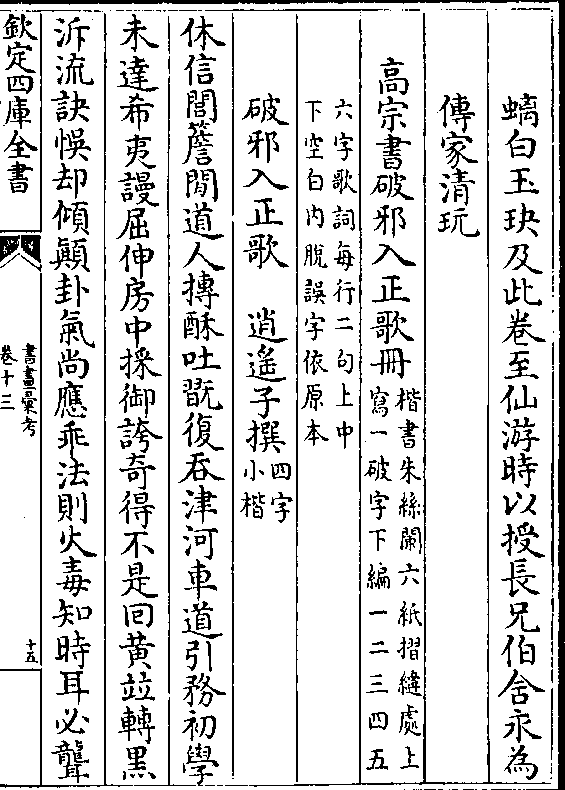 螭白玉玦及此卷至仙游時以授長兄伯舍永為
傳家清玩
高宗書破邪入正歌冊
楷書朱絲闌六紙摺縫處上
寫一破字下編一二三四五
六字歌詞每行二句上中
下空白内脫誤字依原本
破邪入正歌 逍遙子撰
四字
小楷
休信閭簷閒道人摶酥吐翫復吞津河車道引務初學
未達希夷謾屈伸房中採御誇奇得不是回黄竝轉黑
泝流訣悞却傾顛卦氣尚應乖法則火毒知時耳必聾
欽定四庫全書
書畫彙考
卷十三
十五